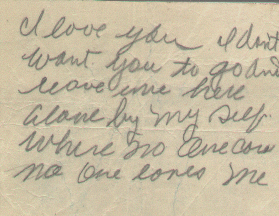 I love you I don't
want you to go and
leave me here
alone by my self.
Where no one care
no one loves me